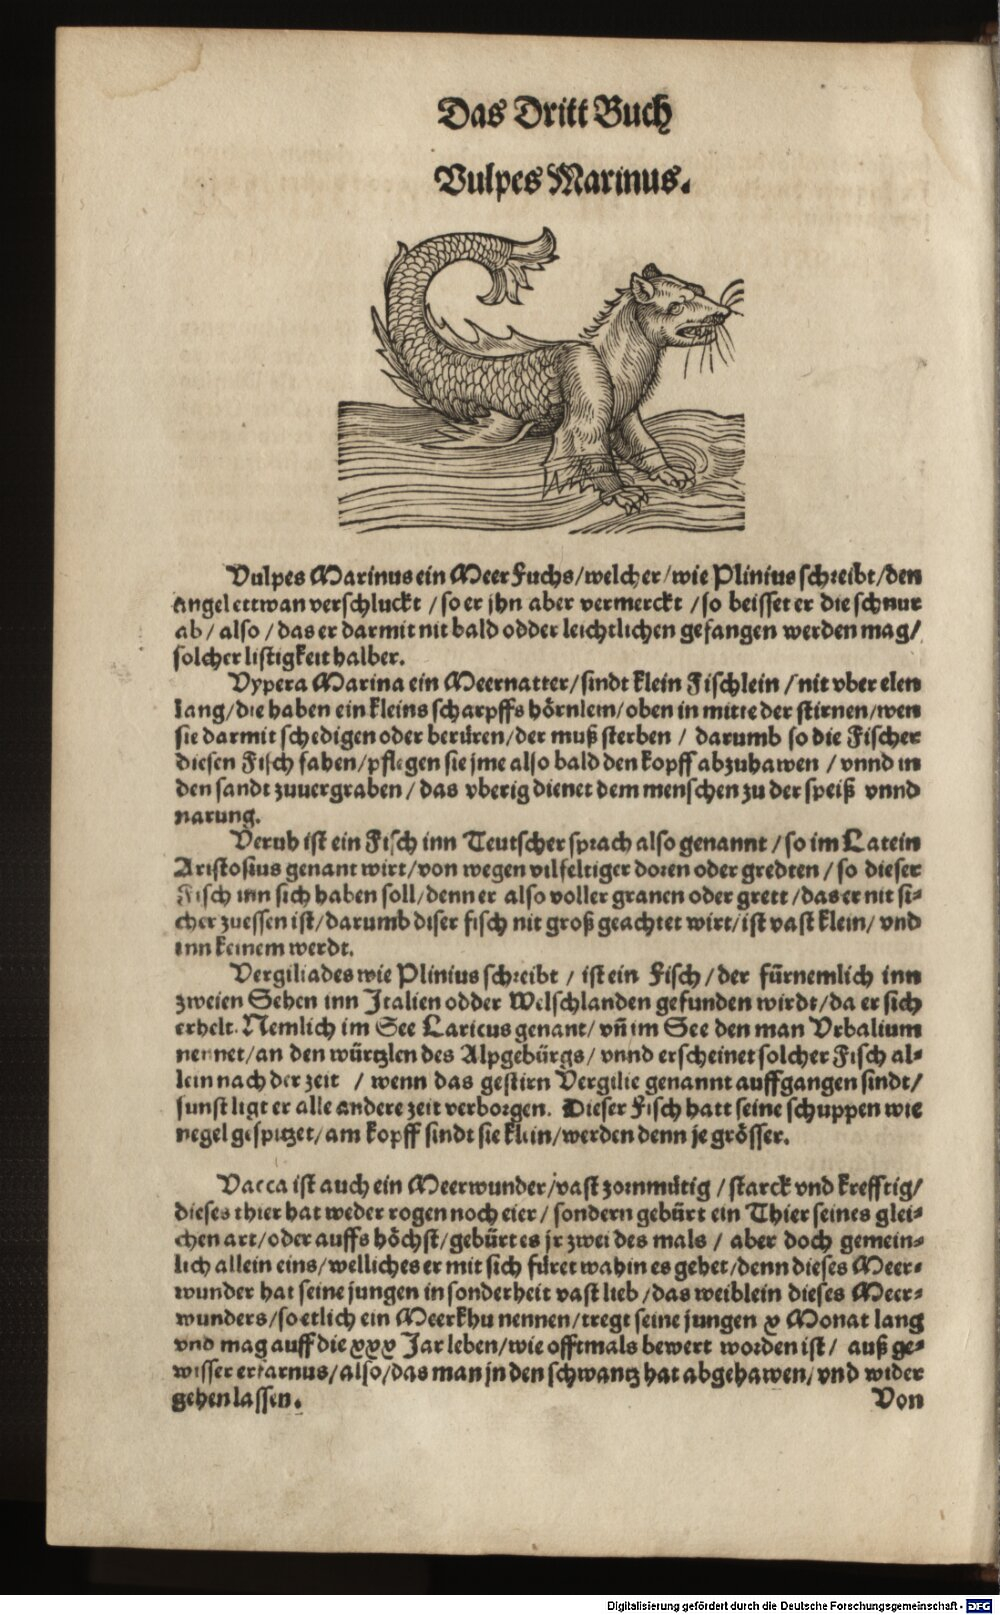 Das Dritt Buch
Vulpes Marinus.
Vulpes Marinus ein Meer Fuchs/welcher/wie Plinius schreibt/den
Angel ettwan verschluckt / so er jhn aber vermerckt / so beisset er die schnur
ab / also / das er darmit nit bald odder leichtlichen gefangen werden mag/
solcher listigkeit halber.
Vypera Marina ein Meernatter/sindt klein Fischlein / nit vber elen
lang/die haben ein kleins scharpffs hörnlein/oben in mitte der stirnen/wen
sie darmit schedigen oder berüren/der muß sterben / darumb so die Fischer
diesen Fisch fahen/pflegen sie jme also bald den kopff abzuhawen / vnnd in
den sandt zuuergraben / das vberig dienet dem menschen zu der speiß vnnd
narung.
Veruh ist ein Fisch inn Teutscher sprach also genannt / so im Latein
Aristosius genant wirt/von wegen vilfeltiger doren oder gredten / so dieser
Fisch inn sich haben soll/denn er also voller granen oder grett/das er nit si⸗
cher zuessen ist/darumb diser fisch nit groß geachtet wirt/ist vast klein/ vnd
inn keinem werdt.
Vergiliades wie Plinius schreibt / ist ein Fisch/der fürnemlich inn
zweien Sehen inn Italien odder Welschlanden gefunden wirdt/da er sich
erhelt. Nemlich im See Laricus genant/ vñ im See den man Vrbalium
nennet/an den würtzlen des Alpgebürgs/ vnnd erscheinet solcher Fisch al⸗
lein nach der zeit / wenn das gestirn Vergilie genannt auffgangen sindt/
sunst ligt er alle andere zeit verborgen. Dieser Fisch hatt seine schuppen wie
negel gespitzet/am kopff sindt sie klein/werden denn je grösser.
Vacca ist auch ein Meerwunder/vast zornmütig / starck vnd krefftig/
dieses thier hat weder rogen noch eier / sondern gebürt ein Thier seines glei⸗
chen art/oder auffs höchst/gebürt es jr zwei des mals / aber doch gemein⸗
lich allein eins/welliches er mit sich füret wahin es gehet/denn dieses Meer⸗
wunder hat seine jungen in sonderheit vast lieb/das weiblein dieses Meer⸗
wunders/so etlich ein Meerkhu nennen/tregt seine jungen x Monat lang
vnd mag auff die xxx Jar leben/wie offtmals bewert worden ist / auß ge⸗
wisser erfarnus/also/das man jn den schwantz hat abgehawen/vnd wider
gehen lassen.
Von
Digitalisierung gefördert durch die Deutsche Forschungsgemeinschaft - DFG